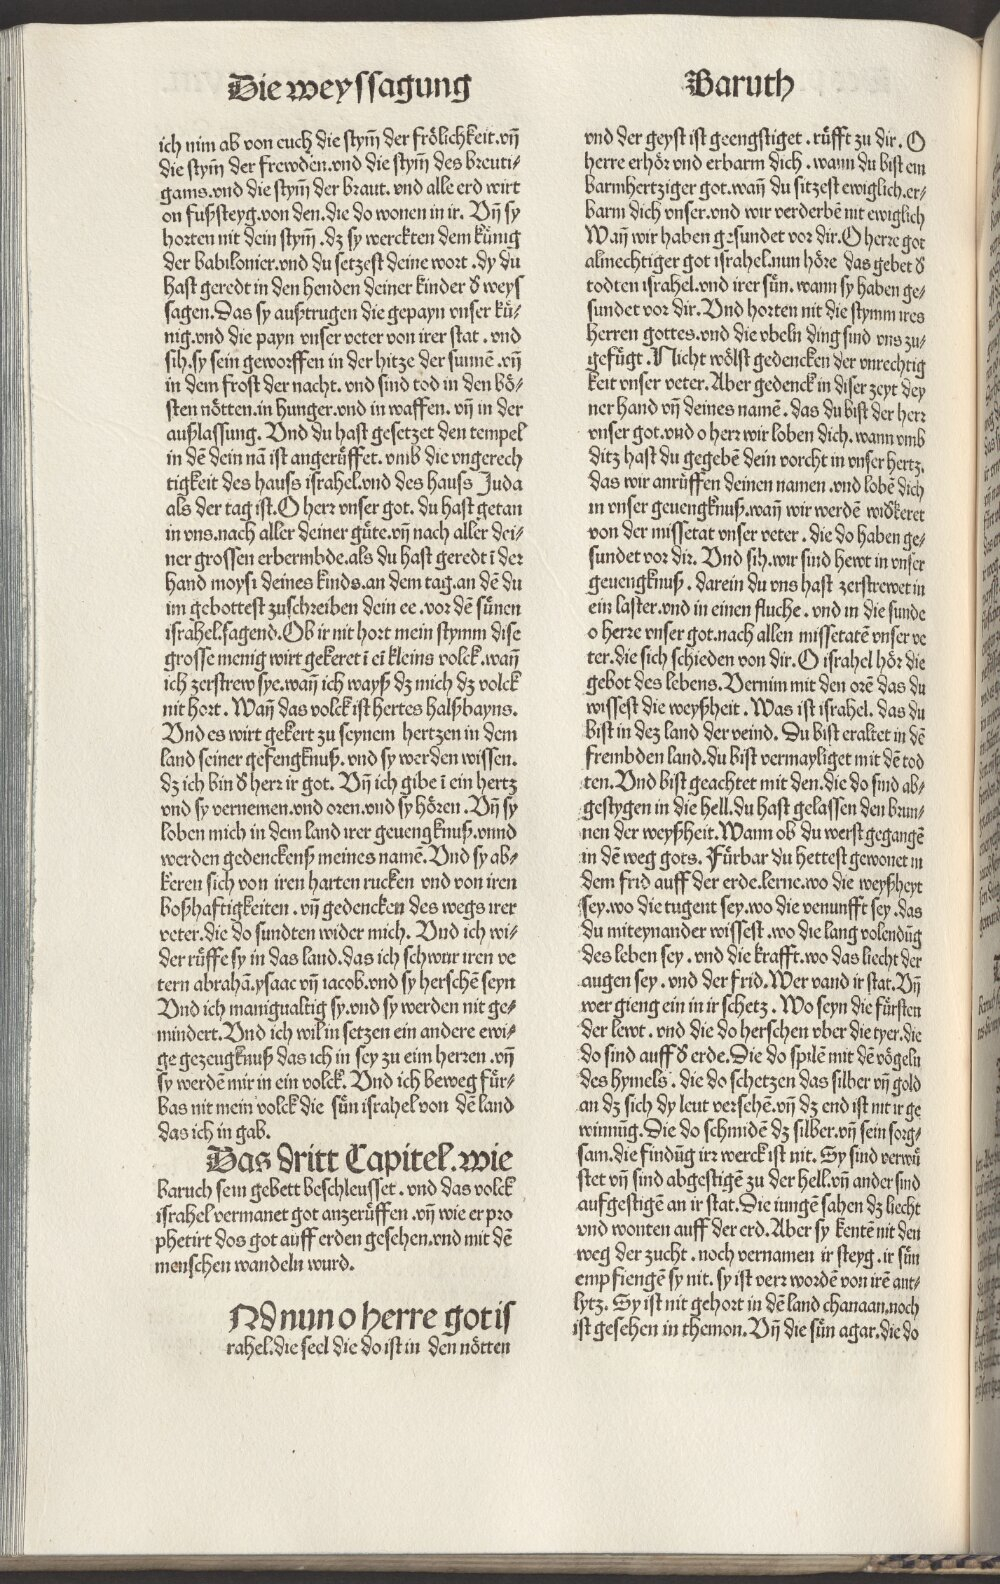 Die weyssagung
Baruth
ich nim ab von euch die stym̄ der frölichkeit.vn̄
die stym̄ der frewden.vnd die stym̄ des breuti-
gams.vnd die stym̄ der braut. vnd alle erd wirt
on fußsteyg.von den.die do wonen in ir. Vn̄ sy
horten nit dein stym̄ .dz sy werckten dem künig
der babilonier.vnd du setzest deine wort .dy du
hast geredt in den henden deiner kinder d̕ weys
sagen.Das sy außtrugen die gepayn vnser kü-
nig.vnd die payn vnser veter von irer stat . vnd
sih.sy sein geworffen in der hitze der sunnē .vn̄
in dem frost der nacht. vnd sind tod in den bö-
sten nötten.in hunger.vnd in waffen. vn̄ in der
außlassung. Vnd du hast gesetzet den tempel
in dē dein nā ist angerüffet. vmb die vngerech
tigkeit des hauss israhel.vnd des hauss Juda
als der tag ist.O herr vnser got. du hast getan
in vns.nach aller deiner güte.vn̄ nach aller dei-
ner grossen erbermbde.als du hast geredt ī der
hand moysi deines kinds.an dem tag.an dē du
im gebottest zuschreiben dein ee .vor dē sünen
israhel.sagend.Ob ir nit hort mein stymm dise
grosse menig wirt gekeret ī eī kleins volck.wan̄
ich zerstrew sye.wan̄ ich wayß dz mich dz volck
nit hort . Wan̄ das volck ist hertes halßbayns.
Vnd es wirt gekert zu seynem hertzen in dem
land seiner gefengknuß. vnd sy werden wissen.
dz ich bin d̕ herr ir got. Vn̄ ich gibe ī ein hertz
vnd sy vernemen.vnd oren.vnd sy hören . Vn̄ sy
loben mich in dem land irer geuengknuß.vnnd
werden gedenckenß meines namē.Vnd sy ab-
keren sich von iren harten rucken vnd von iren
boßhaftigkeiten . vn̄ gedencken des wegs irer
veter.die do sundten wider mich. Vnd ich wi-
der rüffe sy in das land.das ich schwur iren ve
tern abrahā.ysaac vn̄ iacob.vnd sy herschē seyn
Vnd ich manigualtig sy.vnd sy werden nit ge-
mindert.Vnd ich wil in setzen ein andere ewi-
ge gezeugknuß das ich in sey zu eim herren .vn̄
sy werdē mir in ein volck. Vnd ich beweg für-
bas nit mein volck die sün israhel von dē land
das ich in gab.
Das dritt Capitel.wie
Baruch sein gebett beschleusset . vnd das volck
israhel vermanet got anzerüffen .vn̄ wie er pro
phetirt dos got auff erden gesehen.vnd mit dē
menschen wandeln wurd.
Nd nun o herre got is
rahel.die seel die do ist in den nötten
vnd der geyst ist geengstiget . rüfft zu dir. O
herre erhör vnd erbarm dich . wann du bist ein
barmhertziger got.wan̄ du sitzest ewiglich.er-
barm dich vnser.vnd wir verderbē nit ewiglich
Wan̄ wir haben gesundet vor dir.O herre got
almechtiger got israhel.nun höre das gebet d̕
todten israhel.vnd irer sün. wann sy haben ge-
sundet vor dir. Vnd horten nit die stymm ires
herren gottes.vnd die vbeln ding sind vns zu-
gefügt. Nicht wölst gedencken der vnrechtig
keit vnser veter. Aber gedenck in diser zeyt dey
ner hand vn̄ deines namē . das du bist der herr
vnser got.vnd o herr wir loben dich. wann vmb
ditz hast du gegebē dein vorcht in vnser hertz.
das wir anrüffen deinen namen .vnd lobē dich
in vnser geuengknuß.wan̄ wir werdē wid̕keret
von der missetat vnser veter . die do haben ge-
sundet vor dir. Vnd sih.wir sind hewt in vnser
geuengknuß . darein du vns hast zerstrewet in
ein laster.vnd in einen fluche . vnd in die sunde
o herre vnser got.nach allen missetatē vnser ve
ter.die sich schieden von dir.O israhel hör die
gebot des lebens. Vernim mit den orē das du
wissest die weyßheit . Was ist israhel. das du
bist in dez land der veind. Du bist eraltet in dē
frembden land.du bist vermayliget mit dē tod
ten.Vnd bist geachtet mit den.die do sind ab-
gestygen in die hell.du hast gelassen den brun-
nen der weyßheit.Wann ob du werst gegangē
in dē weg gots. Fürbar du hettest gewonet in
dem frid auff der erde.lerne.wo die weyßheyt
sey.wo die tugent sey.wo die venunfft sey .das
du miteynander wissest .wo die lang volendūg
des leben sey . vnd die krafft.wo das liecht der
augen sey . vnd der frid. Wer vand ir stat.Vn̄
wer gieng ein in ir schetz . Wo seyn die fürsten
der lewt . vnd die do herschen vber die tyer.die
do sind auff d̕ erde. Die do spilē mit dē vögeln
des hymels . die do schetzen das silber vn̄ gold
an dz sich dy leut versehē.vn̄ dz end ist nit ir ge
winnūg. Die do schmidē dz silber.vn̄ sein sorg-
sam.die findūg irr werck ist nit. Sy sind verwü
stet vn̄ sind abgestigē zu der hell.vn̄ ander sind
aufgestigē an ir stat. Die iungē sahen dz liecht
vnd wonten auff der erd. Aber sy kentē nit den
weg der zucht . noch vernamen ir steyg .ir sün
empfiengē sy nit. sy ist verr wordē von irē ant-
lytz. Sy ist nit gehort in dē land chanaan.noch
ist gesehen in themon. Vn̄ die sün agar.die do